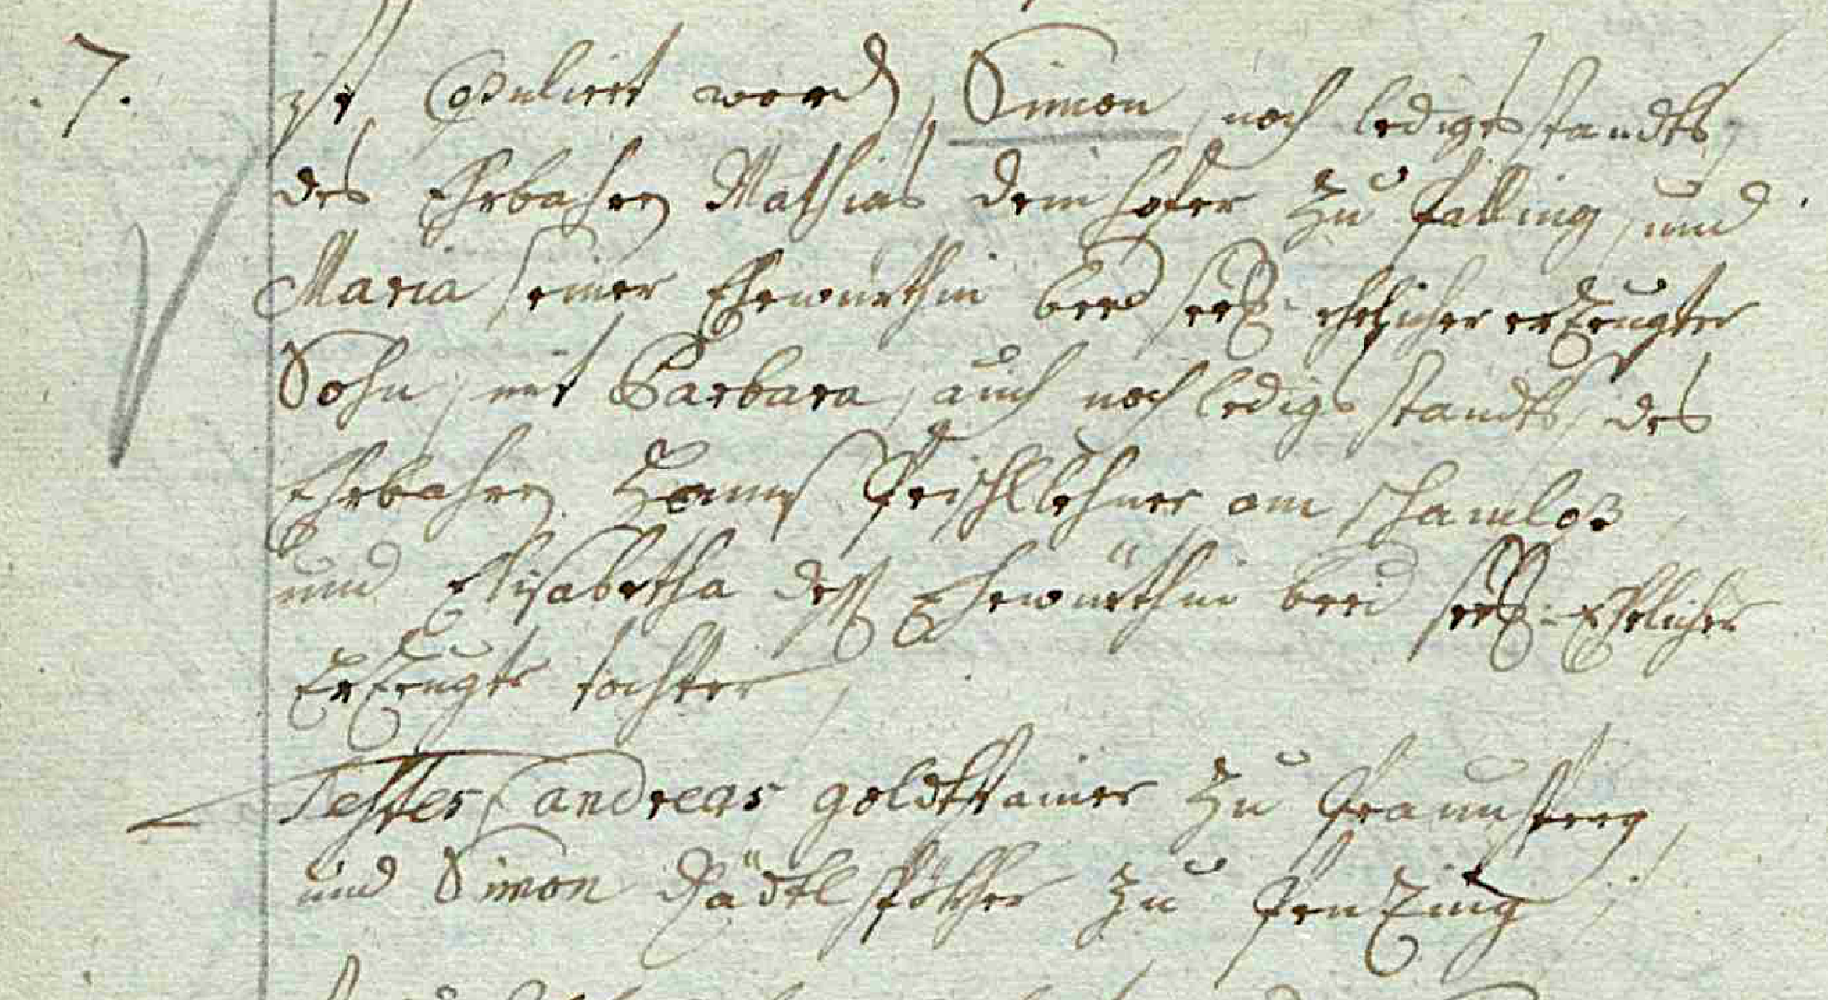 .7. ist Copuliert word, Simon, noch ledigs standts,
des Ehrbahren Mathias demhofer zu falling, und
Maria seiner Ehewürthin beed seel: ehelicher erzeugter
Sohn, mit Barbara, auch noch ledigs standts, des
Ehrbahren Hanns Peischllehner am
und Elisabetha dess Ehewürthin beed seel: Ehelicher
Erzeugte tochter,
Testes andreas goldtstainer zu
und Simon zu